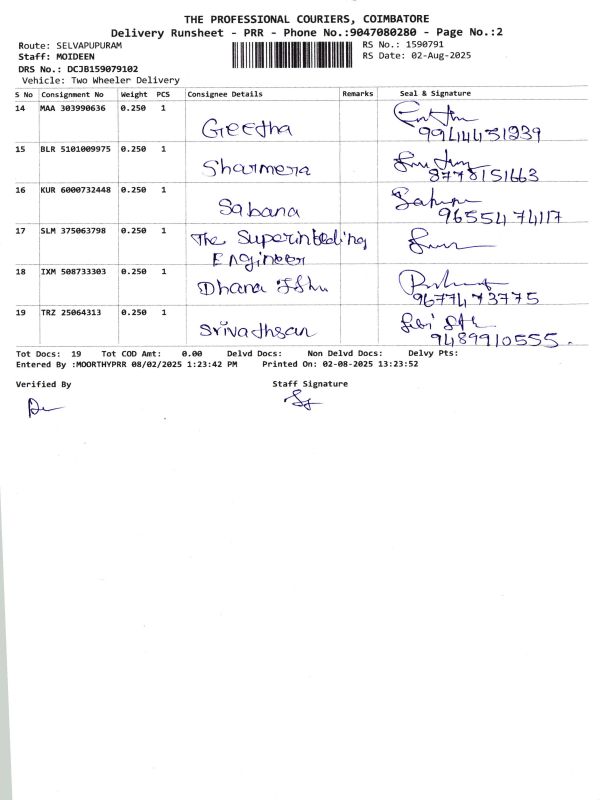 THE PROFESSIONAL COURIERS, COIMBATORE
Delivery Runsheet - PRR - Phone No.:9047080280 - Page No.:2
Route: SELVAPUPURAM RS No.: 1590791
Staff: MOIDEEN RS Date: 02-Aug-2025
DRS No.: DCJB159079102
Vehicle: Two Wheeler Delivery
S No Consignment No Weight PCS Consignee Details Remarks Seal & Signature
14 MAA 303990636 0.250 1
Geetha 9944451239
15 BLR 5101009975 0.250 1
Sharmera 8778151663
16 KUR 6000732448 0.250 1
Sabana 9655474117
17 SLM 375063798 0.250 1 The Superintending
Engineer
18 IXM 508733303 0.250 1
Dhana 9677473775
19 TRZ 25064313 0.250 1
Srivathsan 9489910555.
Tot Docs: 19 Tot COD Amt: 0.00 Delvd Docs: Non Delvd Docs: Delvy Pts:
Entered By :MOORTHYPRR 08/02/2025 1:23:42 PM Printed On: 02-08-2025 13:23:52
Verified By Staff Signature